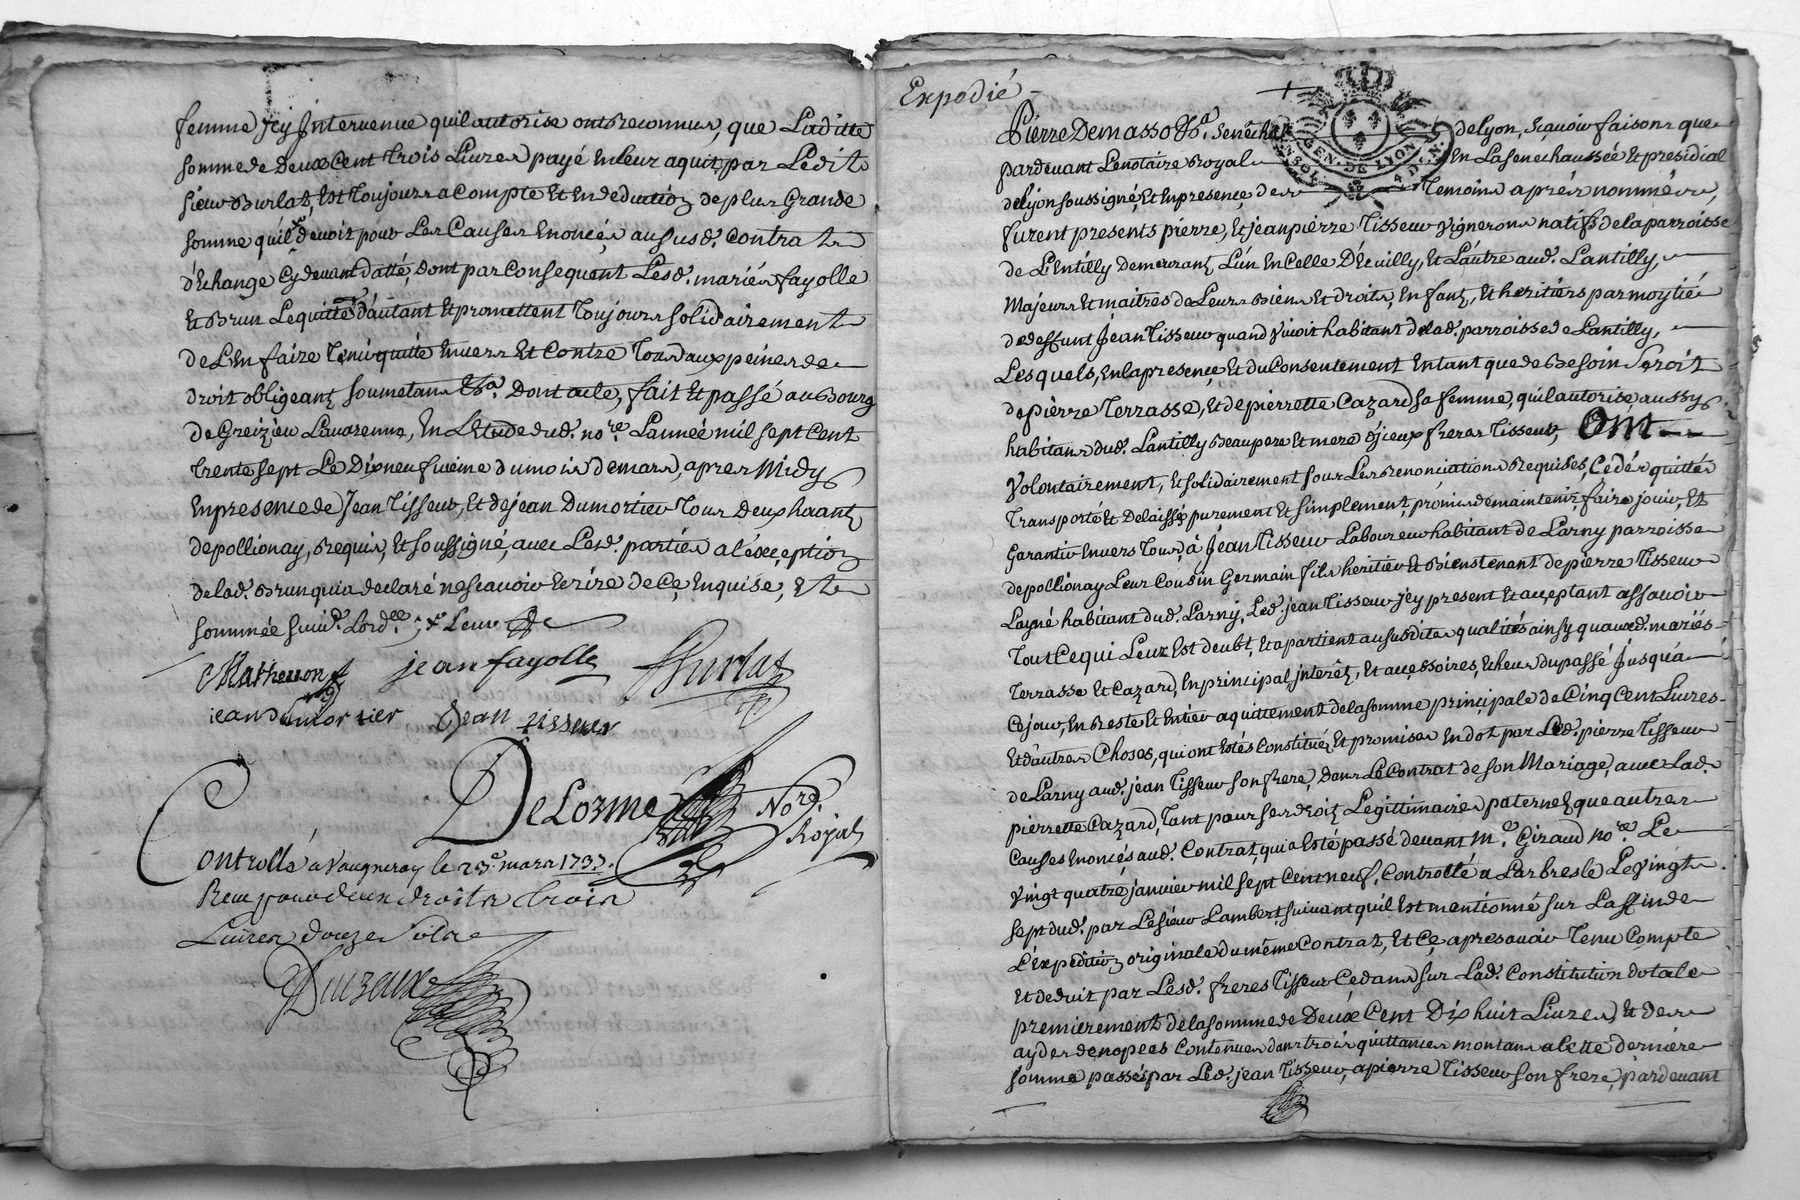 femme jcy Intervenue quil autorise ont Reconnus, que Laditte
somme de deux Cent trois Livres payé en leur aquit par Ledit
sieur Burlat, est toujours a Compte et en deduction de plus Grande
somme quil devoit pour Les Causes Enoncées au susd. Contrat
d'Echange cy devant datté, dont par Consequent Lesd. mariés fayolle
et Brun Le quitte d'autant et promettent Toujours solidairement
de L'en faire Tenir quitte envers et Contre Tous aux peines de
droit obligeant soumetans &a. Dont acte, fait et passé au Bourg
de Greizieu Lavarenne, en L'etude dud. nore. L'année mil sept Cent
Trente sept Le Dixneufvieme du mois de mars, apres Midy
en presence de Jean Tisseur, et de jean Dumortier Tous deux haants
de pollionay, Requis, et soussigné, avec Lesd. parties a l'exception
de lad. Brun qui a declaré ne scavoir Ecrire de Ce Enquise, et
sommée suivt. Lordce. ; x Leur
Mathevon jean fayolle Burlat
jean dumortier Jean tisseur
DeLorme Nore. Royal
Controllé a Vaugneray le 23e. mars 1737.
Reçu pour deux droits trois
Livres douze sols
Expedié
Pierre Demasso &a. Senéchal de Lyon, scavoir faisons que
pardevant Le notaire Royal En La senechaussée et presidial
GEN. DE LYON
delyon soussigné, et en presence des Temoins aprés nommés,
furent presents pierre, et jean pierre Tisseur vignerons natifs de la parroisse
de L'entilly demeurant L'un En Celle D'Ecuilly, et L'autre aud. Lantilly,
Majeurs et maitres de Leurs Biens et droits, Enfans, et heritiers par moytié
de deffunt Jean Tisseur quand vivoit habitant de lad. parroisse de Lantilly,
Lesquels, en la presence et du Consentement En tant que de Besoin seroit
de pierre Terrasse, et de pierrette Cazard sa femme, qu'il autorise, aussy
habitans dud. Lantilly Beau pere et mere d'jceux freres Tisseur, Ont
Volontairement, et solidairement sous Les Renonciations Requises, Cedés quittés
Transporté et Delaissé purement et simplement, promis de maintenir, faire jouir, et
Garantir Envers Tous, à Jean Tisseur Laboureur habitant de Larny parroisse
de pollionay Leur Cousin Germain fils heritier et Bienstenant de pierre Tisseur
Layné habitant dud. Larny, Led. jean Tisseur jcy present et acceptant assavoir
Tout Ce qui Leur Est deubt, et apartient aususdites qualités ainsy quauxd. mariés
Terrasse et Cazard, En principal, jnterêt, et accessoires, Echeus du passé jusqu'a
Cejour, En Reste et Entier aquittement de la somme principale de Cinq Cent Livres
Et d'autres Choses, qui ont Estés Constitué et promises En dot par Led. pierre Tisseur
de Larny aud. jean Tisseur son frere, dans Le Contrat de son Mariage, avec Lad.
pierrette Cazard, Tant pour ses droits Legittimaires paternels que autres
Causes Enoncés aud. Contrat, qui a Esté passé devant Me. Giraud nore. Le
vingt quatre janvier mil sept Cent neuf, Controllé a Larbresle Le vingt
sept dud. par Le sieur Lambert suivant qu'il Est mentionné sur La fin de
L'expedition originale du même Contrat, et Ce apres avoir Tenu Compte
et deduit par Lesd. freres Tisseur Cedans sur Lad. Constitution dotale
premierement de la somme de Deux Cent Dix huit Livres, et des
aydes de nopces Contenues dans trois quittances montans a Cette derniére
somme passées par Led. jean Tisseur, a pierre Tisseur son frere, pardevant